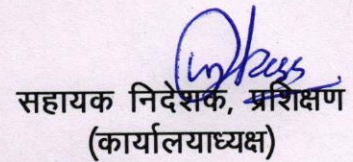 सहायक निदेशक, प्रशिक्षण
(कार्यालयाध्यक्ष)